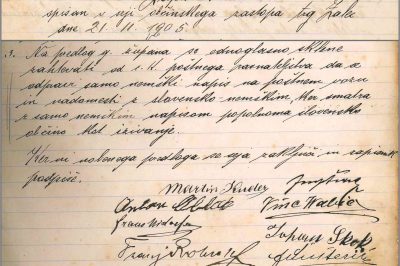 spisan v seji občinskega zastopa trg Žalec
dne 21. 11. 1905.
3. Na predlog g. župana se ednoglasno sklene
zahtevati od c. k. poštnega ravnateljstva da
odpravi samo nemški napis na poštnem vozu
in nadomesti z slovensko nemškim, ker smatra
z samo nemškim napisom popolnoma slovensko
občino kot izzivanje.
Ker ni nobenega predloga se seja zaključi in zapisnik
podpiše.
Martin
Anton Oblak
Vinc
Franc
Johann Skok
Franz